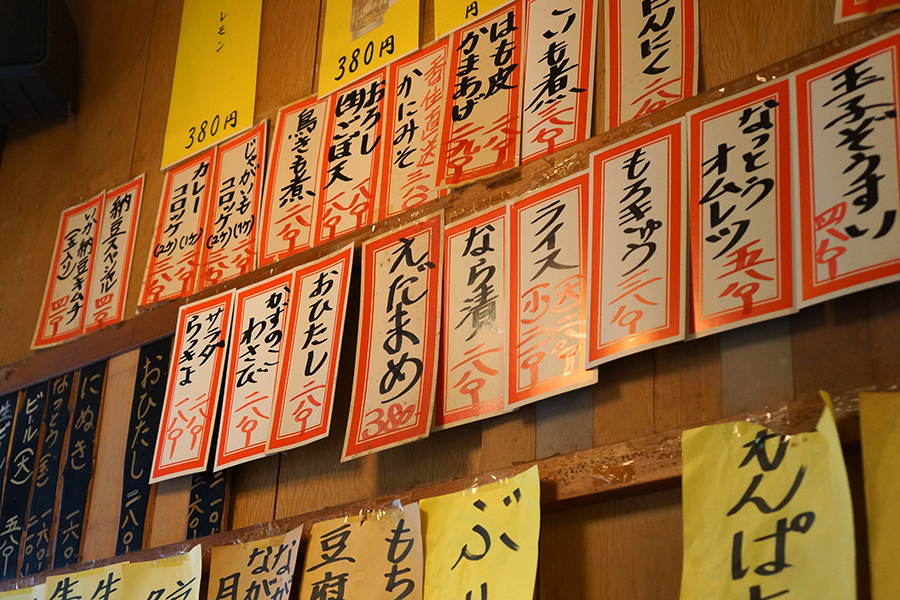 レモン
380円
380円
円
にんにく
こいも煮
二八〇
はも皮
かまあげ
二九〇
二八〇
香住直送
かにみそ
おろし
(肉)ごぼ天
鳥きも煮
二八〇
じゃがいも
コロッケ(1ケ)
(2ケ)
カレー
コロッケ(1ケ)
(2ケ)
納豆スペシャル
いか納豆キムチ
(玉入り)
玉子ぞうすい
四八〇
なっとう
オムレツ
五八〇
もろきゅう
二八〇
ライス
大二二〇
小二〇〇
なら漬
二八〇
えだまめ
380
おひたし
二八〇
かずのこ
わさび
二八〇
サラダ
らっきょ
二八〇
おひたし
二八〇
にぬき
一六〇
なっとう
(玉)
一六〇
ビール(大)
五八〇
かんぱち
ぶり
もち
豆腐
なが